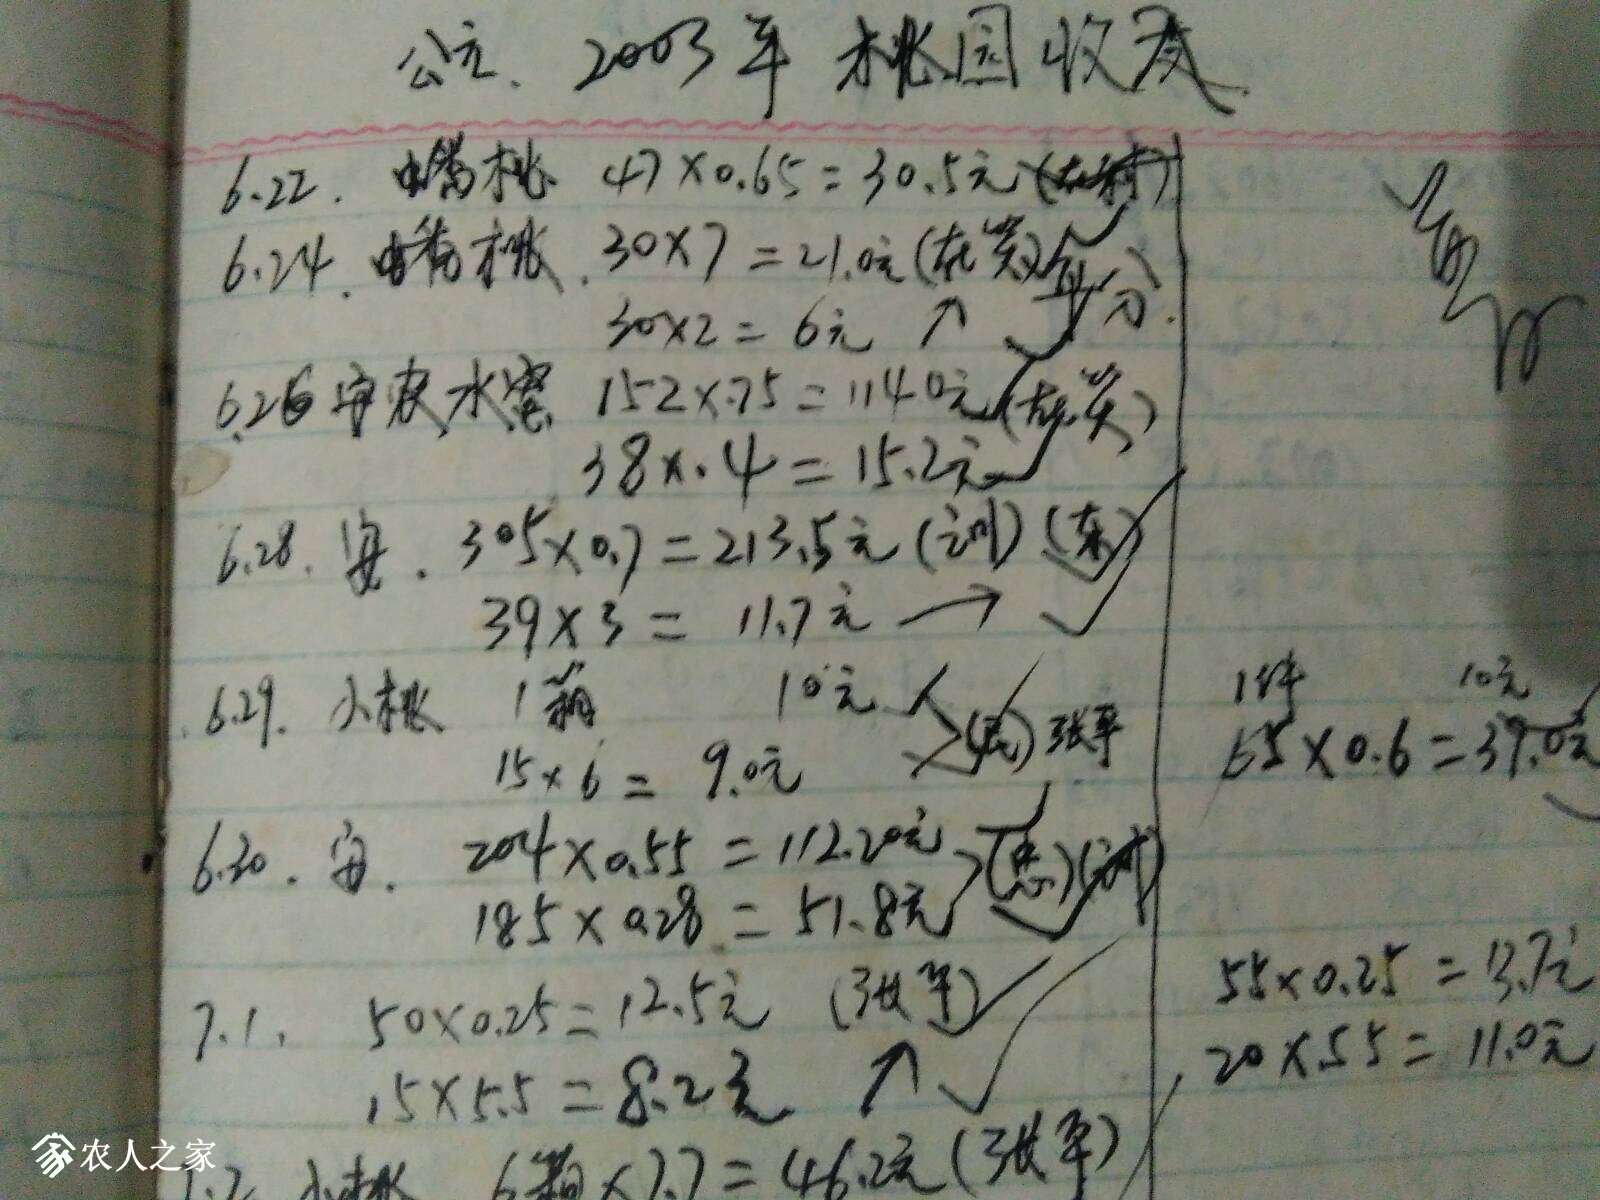 公元. 2003年 桃园收支
6.22. 桃 47×0.65=30.5元
6.24. 桃. 30×7=21.0元 平分
30×2=6元
6.26 安农水蜜 152×.75=114.0元
38×.4=15.2元
6.28. 安. 305×0.7=213.5元
39×3= 11.7元
6.29. 小桃 1箱 10元 1件 10元
15×6= 9.0元 张平 65×0.6=39.0元
6.30. 安. 204×0.55=112.20元
185×0.28=51.8元
7.1. 50×0.25=12.5元 (张平) 55×0.25=13.7元
15×5.5=8.2元 20×.55=11.0元
7.2 小桃 6箱×7.7=46.2元(张平)
农人之家